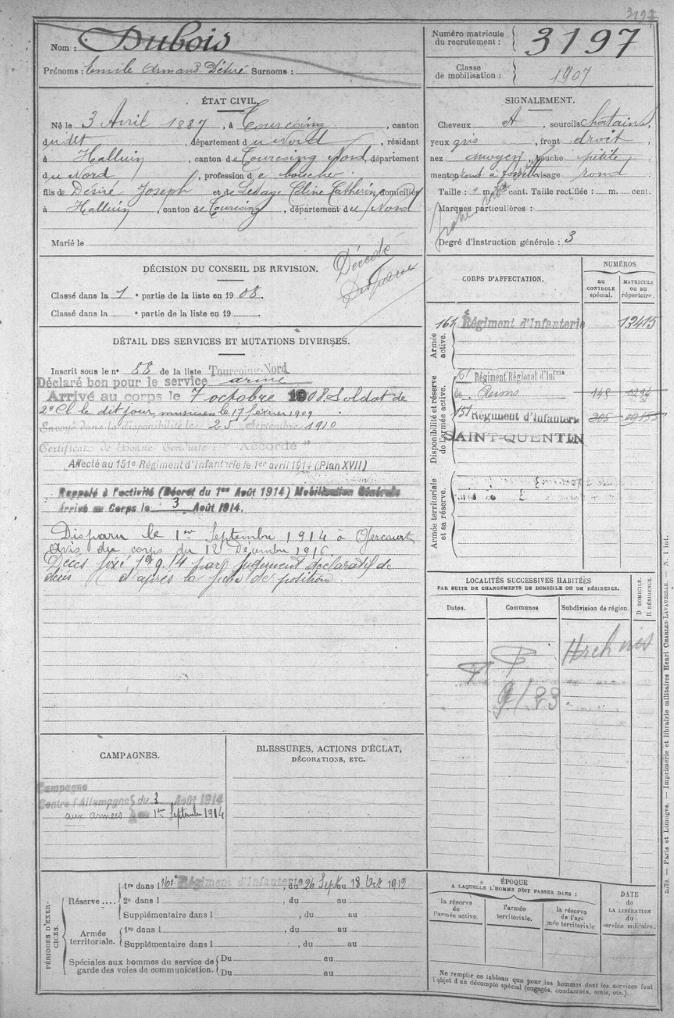 3197
Nom : Dubois
Prénoms : Emile Armand Désiré Surnoms :
Numéro matricule du recrutement : 3197
Classe de mobilisation : 1907
ÉTAT CIVIL.
Né le 3 Avril 1887, à Tourcoing, canton
du dit, département du Nord, résidant
à Halluin, canton de Tourcoing Nord, département
du Nord, profession de
fils de Désiré Joseph et de Céline Catherine domiciliés
à Halluin, canton de Tourcoing, département du Nord
Marié le
SIGNALEMENT.
Cheveux, sourcils châtains
yeux gris, front droit
nez moyen, bouche petite
menton rond, visage rond
Taille : 1 m. cent. Taille rectifiée : m. cent.
Marques particulières :
Degré d'Instruction générale : 3
DÉCISION DU CONSEIL DE REVISION.
Décédé
Disparu
Classé dans la 1 e partie de la liste en 1908.
Classé dans la e partie de la liste en 19
DÉTAIL DES SERVICES ET MUTATIONS DIVERSES.
Inscrit sous le n° 88 de la liste Tourcoing-Nord
Déclaré bon pour le service armé
Arrivé au corps le 7 octobre 1908. Soldat de
2e Cl. le dit jour, musicien le 17 février 1909.
Envoyé dans la disponibilité le 25 septembre 1910
Certificat de Bonne Conduite : " Accordé "
Affecté au 151e Régiment d'Infanterie le 1er avril 1914 (Plan XVII)
Rappelé à l'activité (Décret du 1er Août 1914) Mobilisation Générale
Arrivé au Corps le 3 Août 1914.
Disparu le 1er Septembre 1914 à
Avis du corps du 12 Décembre 1916.
Décès fixé 1.9.14 par jugement déclaratif de
décès d'après la fiche de pétition
CORPS D'AFFECTATION.
NUMÉROS
DU CONTRÔLE spécial.
MATRICULE OU DU répertoire.
Armée active.
Régiment d'Infanterie
Disponibilité et réserve de l'armée active.
Régiment Régional d'Infrie
151e Régiment d'Infanterie
SAINT-QUENTIN
Armée territoriale et sa réserve.
LOCALITÉS SUCCESSIVES HABITÉES
PAR SUITE DE CHANGEMENTS DE DOMICILE OU DE RÉSIDENCE.
Dates.
Communes
Subdivision de région.
D. DOMICILE.
R. RÉSIDENCE.
CAMPAGNES.
Campagne
Contre l'Allemagne du 3 Août 1914
aux armées au 1er Septembre 1914
BLESSURES, ACTIONS D'ÉCLAT,
DÉCORATIONS, ETC.
PÉRIODES D'EXERCICES.
Réserve
1re dans l Régiment d'Infanterie, du 26 Sept au 18 Oct 1912
2e dans l , du au
Supplémentaire dans l , du au
Armée territoriale.
1re dans l , du au
Supplémentaire dans l , du au
Spéciales aux hommes du service de garde des voies de communication.
Du au
Du au
ÉPOQUE
A LAQUELLE L'HOMME DOIT PASSER DANS :
la réserve de l'armée active.
l'armée territoriale.
la réserve de l'armée territoriale
DATE
DE LA LIBÉRATION du service militaire.
Ne remplir ce tableau que pour les hommes dont les services font l'objet d'un décompte spécial (engagés, condamnés, omis, etc.).
Paris et Limoges. — Imprimerie et librairie militaires Henri CHARLES-LAVAUZELLE.